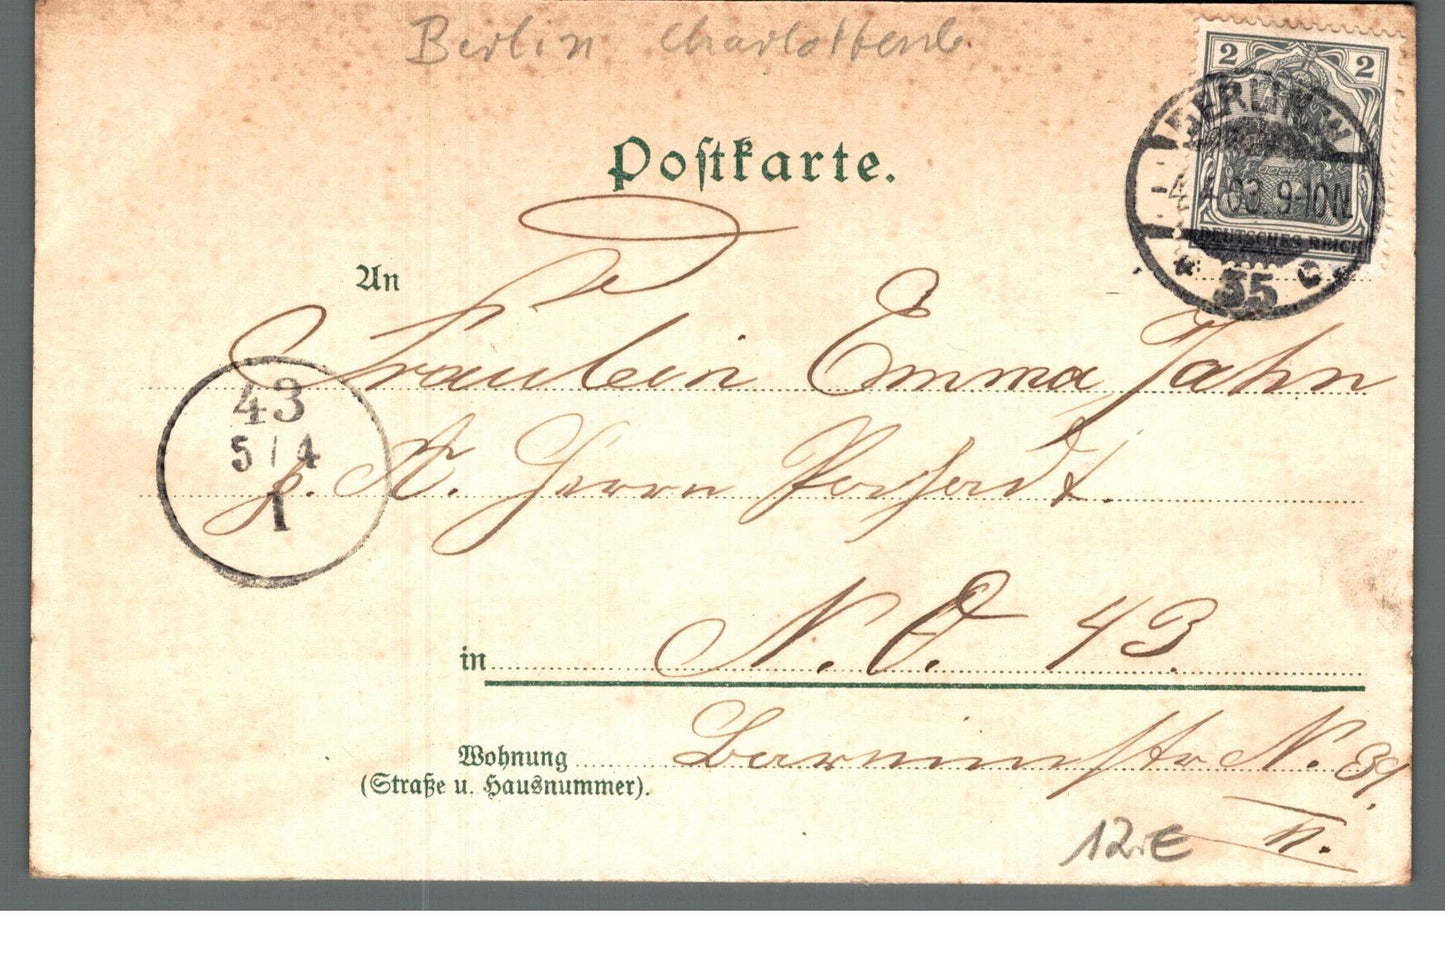 Berlin Charlottenb.
2 2
BERLIN W
-4. 4. 03 9-10N.
DEUTSCHES REICH
* 35 c *
Postkarte.
An
Fräulein Emma Jahn
43
5/4
1
p. A. Herrn
in N. O. 43.
Wohnung Barnimstr N. 39.
(Straße u. Hausnummer).
12.€ II.